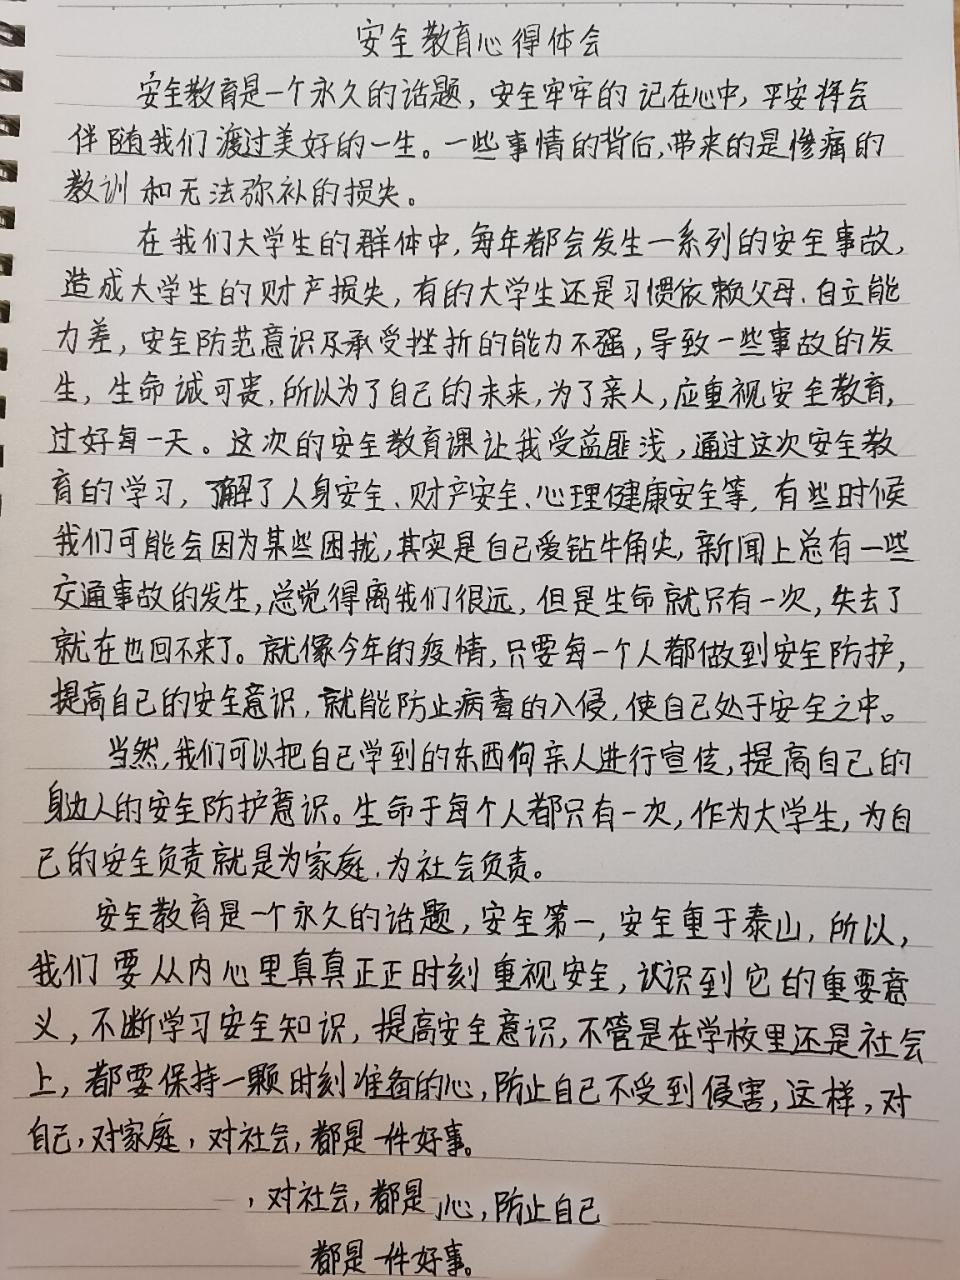 安全教育心得体会
安全教育是一个永久的话题，安全牢牢的记在心中，平安将会
伴随我们渡过美好的一生。一些事情的背后，带来的是惨痛的
教训和无法弥补的损失。
在我们大学生的群体中，每年都会发生一系列的安全事故，
造成大学生的财产损失，有的大学生还是习惯依赖父母、自立能
力差，安全防范意识及承受挫折的能力不强，导致一些事故的发
生，生命诚可贵，所以为了自己的未来，为了亲人，应重视安全教育，
过好每一天。这次的安全教育课让我受益匪浅，通过这次安全教
育的学习，了解了人身安全、财产安全、心理健康安全等，有些时候
我们可能会因为某些困扰，其实是自己爱钻牛角尖，新闻上总有一些
交通事故的发生，总觉得离我们很远，但是生命就只有一次，失去了
就在也回不来了。就像今年的疫情，只要每一个人都做到安全防护，
提高自己的安全意识，就能防止病毒的入侵，使自己处于安全之中。
当然，我们可以把自己学到的东西向亲人进行宣传，提高自己的
身边人的安全防护意识。生命于每个人都只有一次，作为大学生，为自
己的安全负责就是为家庭、为社会负责。
安全教育是一个永久的话题，安全第一，安全重于泰山，所以，
我们要从内心里真真正正时刻重视安全，认识到它的重要意
义，不断学习安全知识，提高安全意识，不管是在学校里还是社会
上，都要保持一颗时刻准备的心，防止自己不受到侵害，这样，对
自己，对家庭，对社会，都是一件好事。
，对社会，都是心，防止自己
都是一件好事。